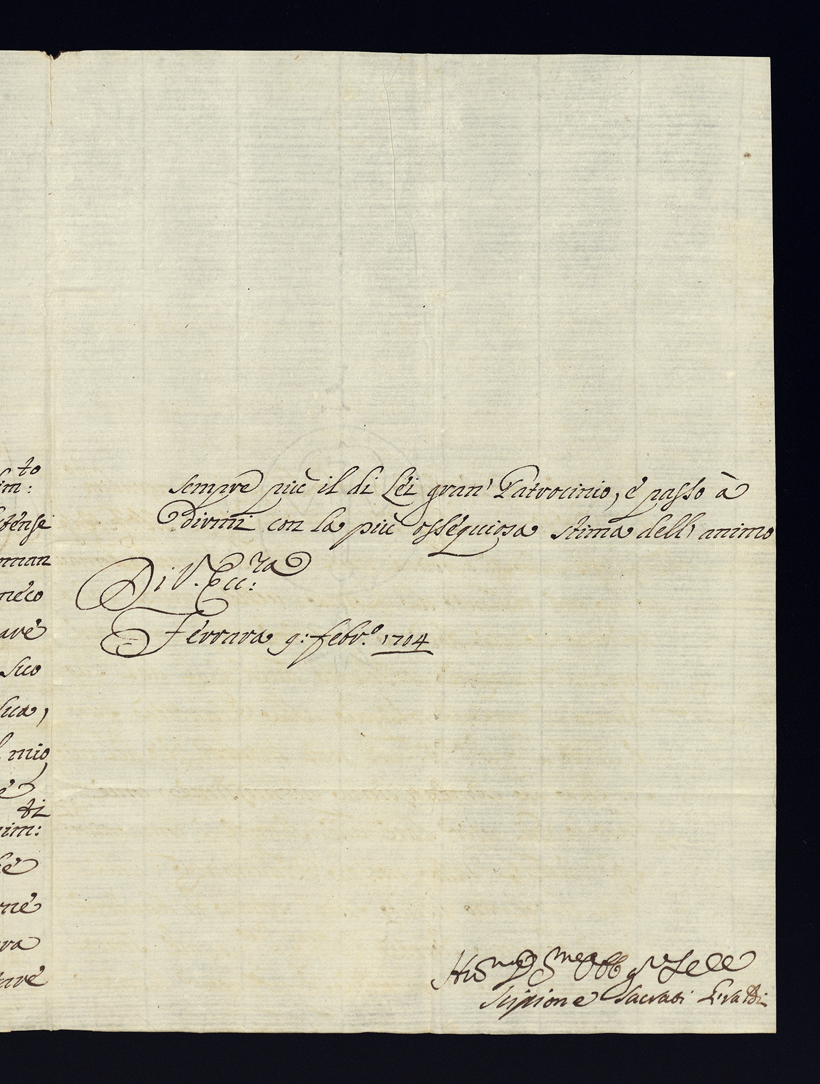 to
im:
ofense
man
meco
avè
suo
sua,
l mio
è
di
im:
chè
rnè
va
tavè
sempre più il di Lei gran' Patrocinio, è passo à
Dirmi con la più ossequiosa stima dell' animo
Di V. Ecc:ra
Ferrara 9: febr.o 1704
Scipione Sacrati